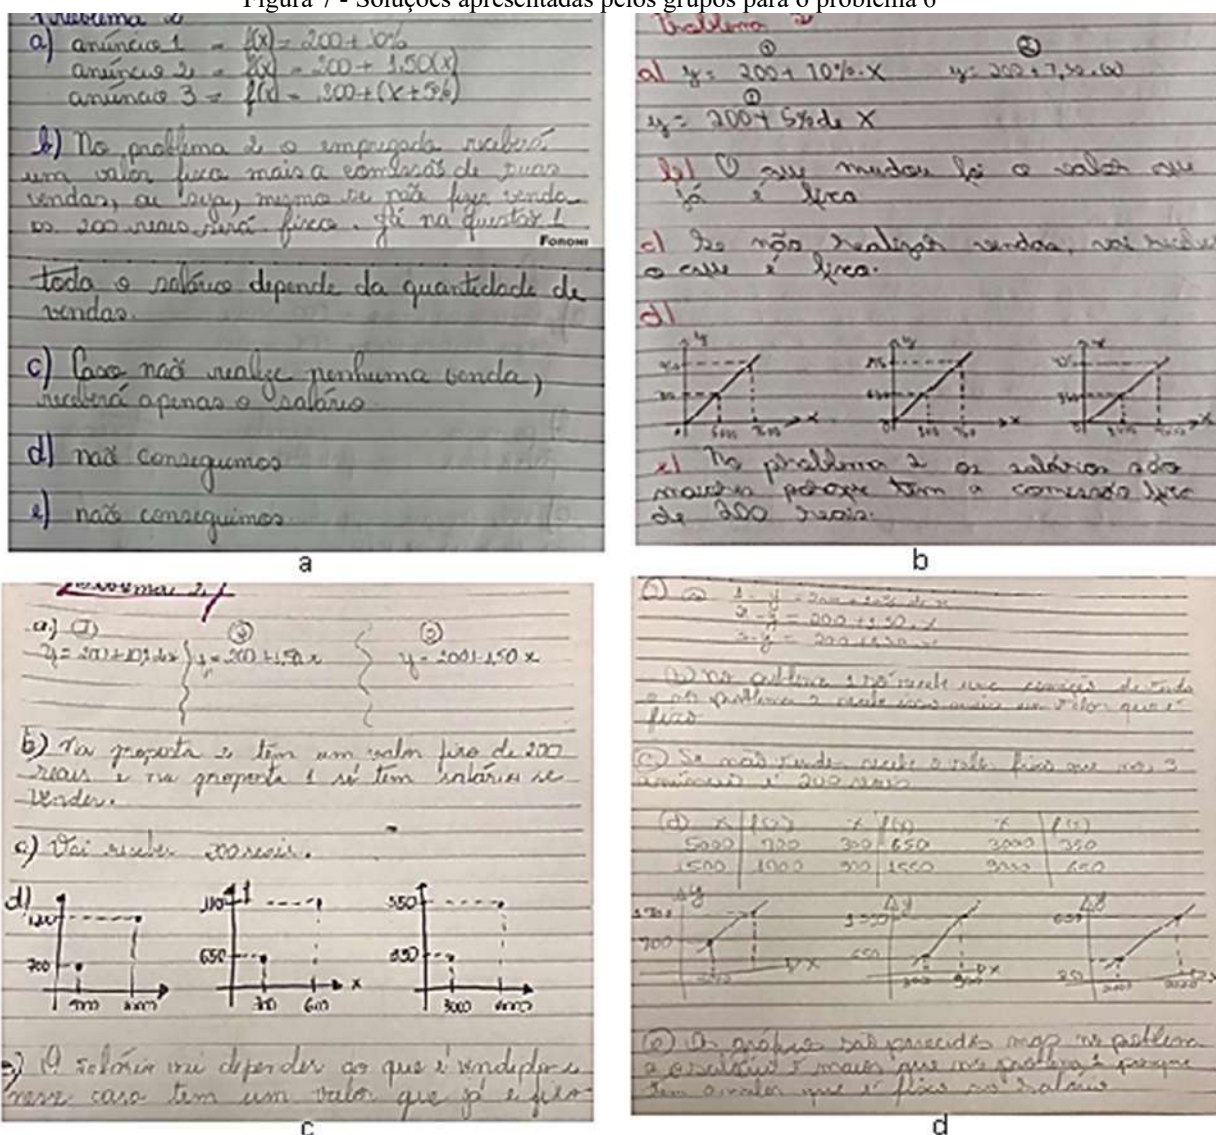 Figura 7 - Soluções apresentadas pelos grupos para o problema 6
Problema 2
a) anúncio 1 = f(x) = 200 + 10%
anúncio 2 = f(x) = 200 + 1,50(x)
anúncio 3 = f(x) = 200 + (x + 5%)
b) No problema 2 o empregado receberá
um valor fixo mais a comissão de suas
vendas, ou seja, mesmo se não fizer venda
os 200 reais será fixo. Já na questão 1
FORONI
todo o salário depende da quantidade de
vendas.
c) Caso naõ realize nenhuma venda,
receberá apenas o salário
d) naõ conseguimos
e) naõ conseguimos
a
Problema 2
a) y = 200 + 10%.x
y = 200 + 5% de x
b) O que mudou foi o valor que
já é fixo
c) Se não realizar vendas, vai receber
o que é fixo.
d)
y y
x x x
e) No problema 2 os salários são
maiores porque tem a comissão fixo
de 200 reais.
b
Problema 2
a) 1 2 3
y = 200 + 10% de x y = 200 + 1,50 x y = 200 + 1,50 x
b) Na proposta 2 têm um valor fixo de 200
reais e na proposta 1 só tem salário se
vender.
c) Vai receber 200 reais.
d)
700 650 350
x
300 600 3000
e) O salário vai depender do que é vendido e
nesse caso tem um valor que já é fixo
c
a) 1 - y = 200 + 10% de x
2 - y = 200 + 1,50 x
3 - y = 200
b) no problema 1 só recebe uma comissão de venda
e no problema 2 recebe isso mais um valor que é
fixo
c) Se não vender recebe o valor fixo que nos 3
anúncios é 200 reais
d) x f(x) x f(x) x f(x)
5000 700 300 650 3000 350
900 1550 9000 650
y y y
700 650
x x x
e) Os gráficos são parecidos mas no problema
2 o salário é maior que no problema 1 porque
tem o valor que é fixo no salário
d